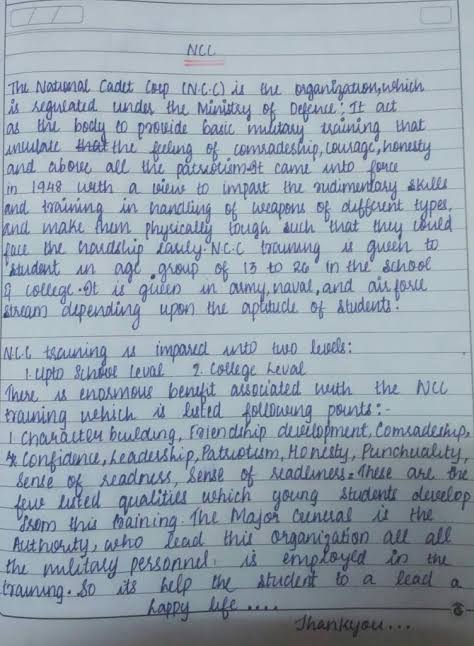 NCC
The National Cadet Corp (N.C.C) is the organization, which
is regulated under the Ministry of Defence. It act
as the body to provide basic military training that
inculate that the feeling of comradeship, courage, honesty
and above all the patriotism. It came into force
in 1948 with a view to impart the rudimentary skills
and training in handling of weapons of different types,
and make them physically tough such that they could
face the hardship easily. N.C.C training is given to
student in age group of 13 to 26 in the school
& college. It is given in army, naval, and air force
stream depending upon the aptitude of students.
N.C.C training is impared into two levels:
1. Upto School Leval 2. College Leval
There is enormous benefit associated with the NCC
training which is listed following points:-
1 Character building, Friendship development, Comradeship,
Confidence, Leadership, Patriotism, Honesty, Punchuality,
Sense of readness, Sense of readiness. These are the
few listed qualities which young students develop
from this training. The Major General is the
Authority, who lead this organization all all
the military personnel. is employed in the
training. So its help the student to a lead a
happy life ....
Thankyou...